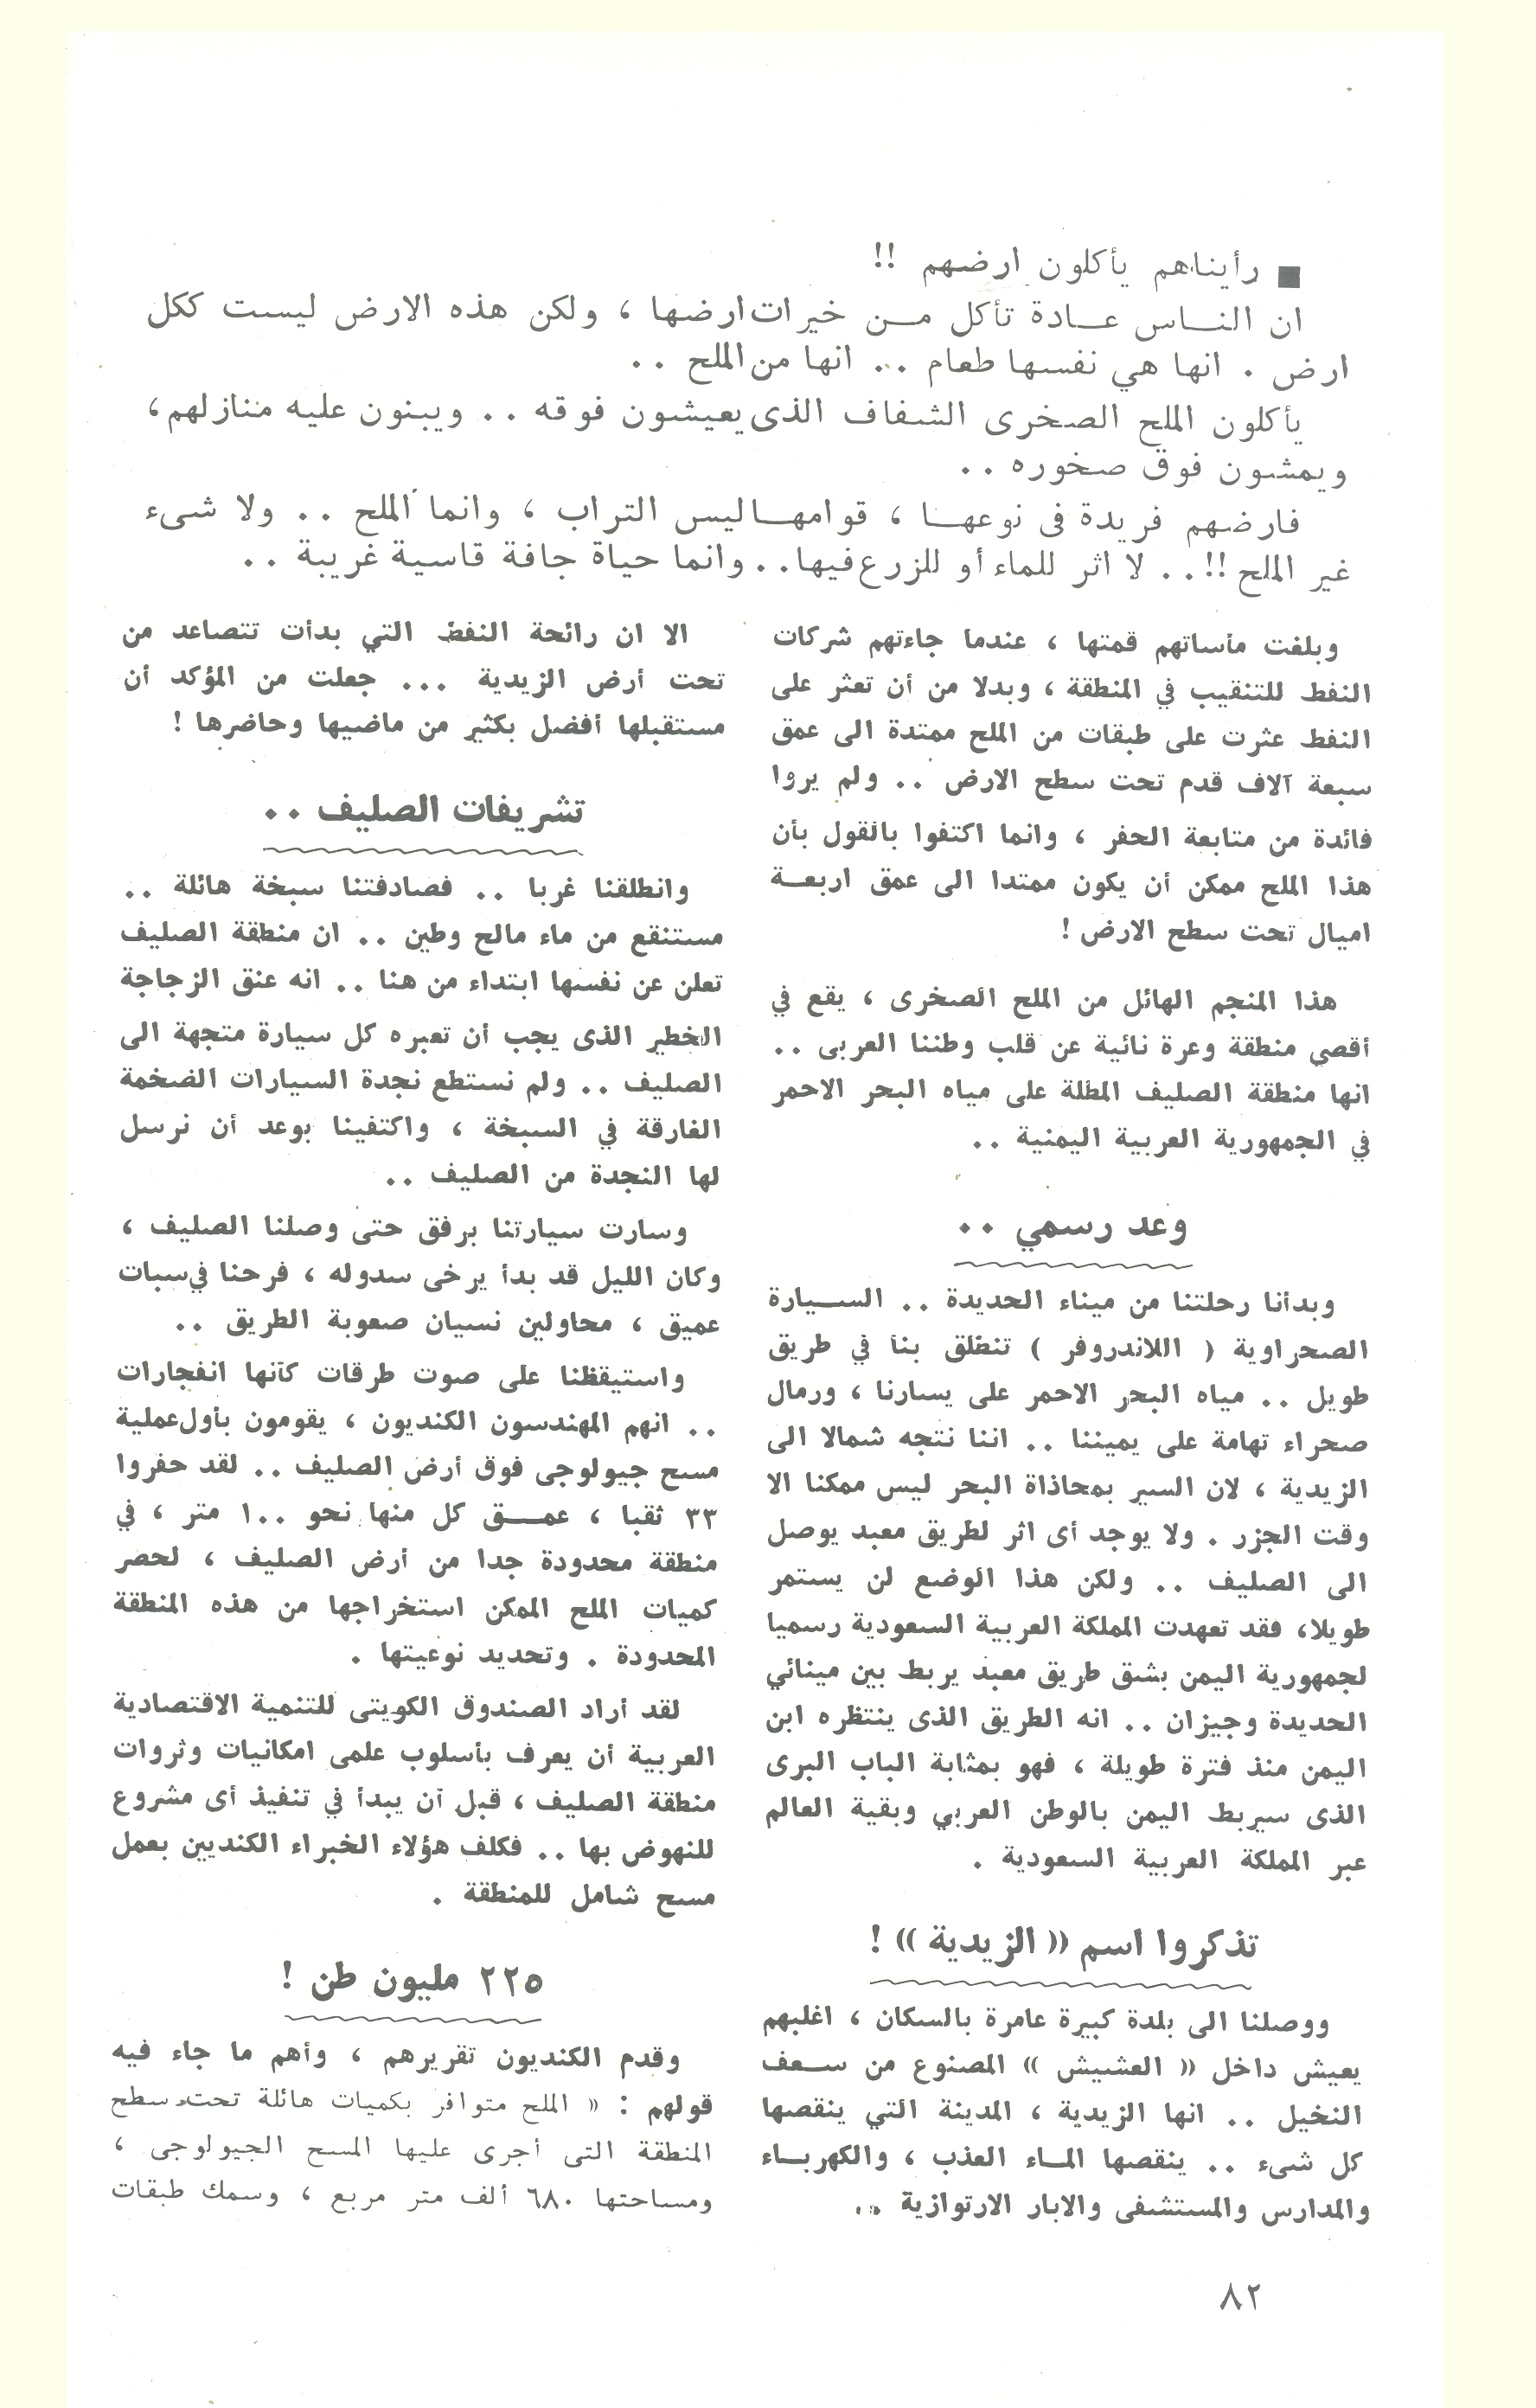 ■ رأيناهم يأكلون ارضهم !!
ان النـــاس عـــادة تأكل مـــن خيرات ارضها ، ولكن هذه الارض ليست ككل
ارض . انها هي نفسها طعام .. انها من الملح ..
يأكلون الملح الصخرى الشفاف الذى يعيشون فوقه .. ويبنون عليه منازلهم،
ويمشون فوق صخوره ..
فارضهم فريدة فى نوعهـــا ، قوامهـــا ليس التراب ، وانما الملح .. ولا شىء
غير الملح !! .. لا اثر للماء أو للزرع فيها .. وانما حياة جافة قاسية غريبة ..
وبلغت مأساتهم قمتها ، عندما جاءتهم شركات
النفط للتنقيب في المنطقة ، وبدلا من أن تعثر على
النفط عثرت على طبقات من الملح ممتدة الى عمق
سبعة آلاف قدم تحت سطح الارض .. ولم يروا
فائدة من متابعة الحفر ، وانما اكتفوا بالقول بأن
هذا الملح ممكن أن يكون ممتدا الى عمق اربعـــة
اميال تحت سطح الارض !
هذا المنجم الهائل من الملح الصخرى ، يقع في
أقصى منطقة وعرة نائية عن قلب وطننا العربى ..
انها منطقة الصليف المطلة على مياه البحر الاحمر
في الجمهورية العربية اليمنية ..
وعد رسمي ..
وبدأنا رحلتنا من ميناء الحديدة .. الســـيارة
الصحراوية ( اللاندروفر ) تنطلق بنا في طريق
طويل .. مياه البحر الاحمر على يسارنا ، ورمال
صحراء تهامة على يميننا .. اننا نتجه شمالا الى
الزيدية ، لان السير بمحاذاة البحر ليس ممكنا الا
وقت الجزر . ولا يوجد أى اثر لطريق معبد يوصل
الى الصليف .. ولكن هذا الوضع لن يستمر
طويلا، فقد تعهدت المملكة العربية السعودية رسميا
لجمهورية اليمن بشق طريق معبد يربط بين مينائي
الحديدة وجيزان .. انه الطريق الذى ينتظره ابن
اليمن منذ فترة طويلة ، فهو بمثابة الباب البرى
الذى سيربط اليمن بالوطن العربي وبقية العالم
عبر المملكة العربية السعودية .
تذكروا اسم (( الزيدية )) !
ووصلنا الى بلدة كبيرة عامرة بالسكان ، اغلبهم
يعيش داخل (( العشيش )) المصنوع من ســـعف
النخيل .. انها الزيدية ، المدينة التي ينقصها
كل شىء .. ينقصها المـــاء العذب ، والكهربـــاء
والمدارس والمستشفى والابار الارتوازية ..
الا ان رائحة النفط التي بدأت تتصاعد من
تحت أرض الزيدية ... جعلت من المؤكد أن
مستقبلها أفضل بكثير من ماضيها وحاضرها !
تشريفات الصليف ..
وانطلقنا غربا .. فصادفتنا سبخة هائلة ..
مستنقع من ماء مالح وطين .. ان منطقة الصليف
تعلن عن نفسها ابتداء من هنا .. انه عنق الزجاجة
الخطير الذى يجب أن تعبره كل سيارة متجهة الى
الصليف .. ولم نستطع نجدة السيارات الضخمة
الغارقة في السبخة ، واكتفينا بوعد أن نرسل
لها النجدة من الصليف ..
وسارت سيارتنا برفق حتى وصلنا الصليف ،
وكان الليل قد بدأ يرخى سدوله ، فرحنا في سبات
عميق ، محاولين نسيان صعوبة الطريق ..
واستيقظنا على صوت طرقات كأنها انفجارات
.. انهم المهندسون الكنديون ، يقومون بأول عملية
مسح جيولوجى فوق أرض الصليف .. لقد حفروا
٣٣ ثقبا ، عمـــق كل منها نحو ١٠٠ متر ، في
منطقة محدودة جدا من أرض الصليف ، لحصر
كميات الملح الممكن استخراجها من هذه المنطقة
المحدودة . وتحديد نوعيتها .
لقد أراد الصندوق الكويتى للتنمية الاقتصادية
العربية أن يعرف بأسلوب علمى امكانيات وثروات
منطقة الصليف ، قبل أن يبدأ في تنفيذ أى مشروع
للنهوض بها .. فكلف هؤلاء الخبراء الكنديين بعمل
مسح شامل للمنطقة .
٢٢٥ مليون طن !
وقدم الكنديون تقريرهم ، وأهم ما جاء فيه
قولهم : (( الملح متوافر بكميات هائلة تحت سطح
المنطقة التى أجرى عليها المسح الجيولوجى ،
ومساحتها ٦٨٠ ألف متر مربع ، وسمك طبقات
٨٢